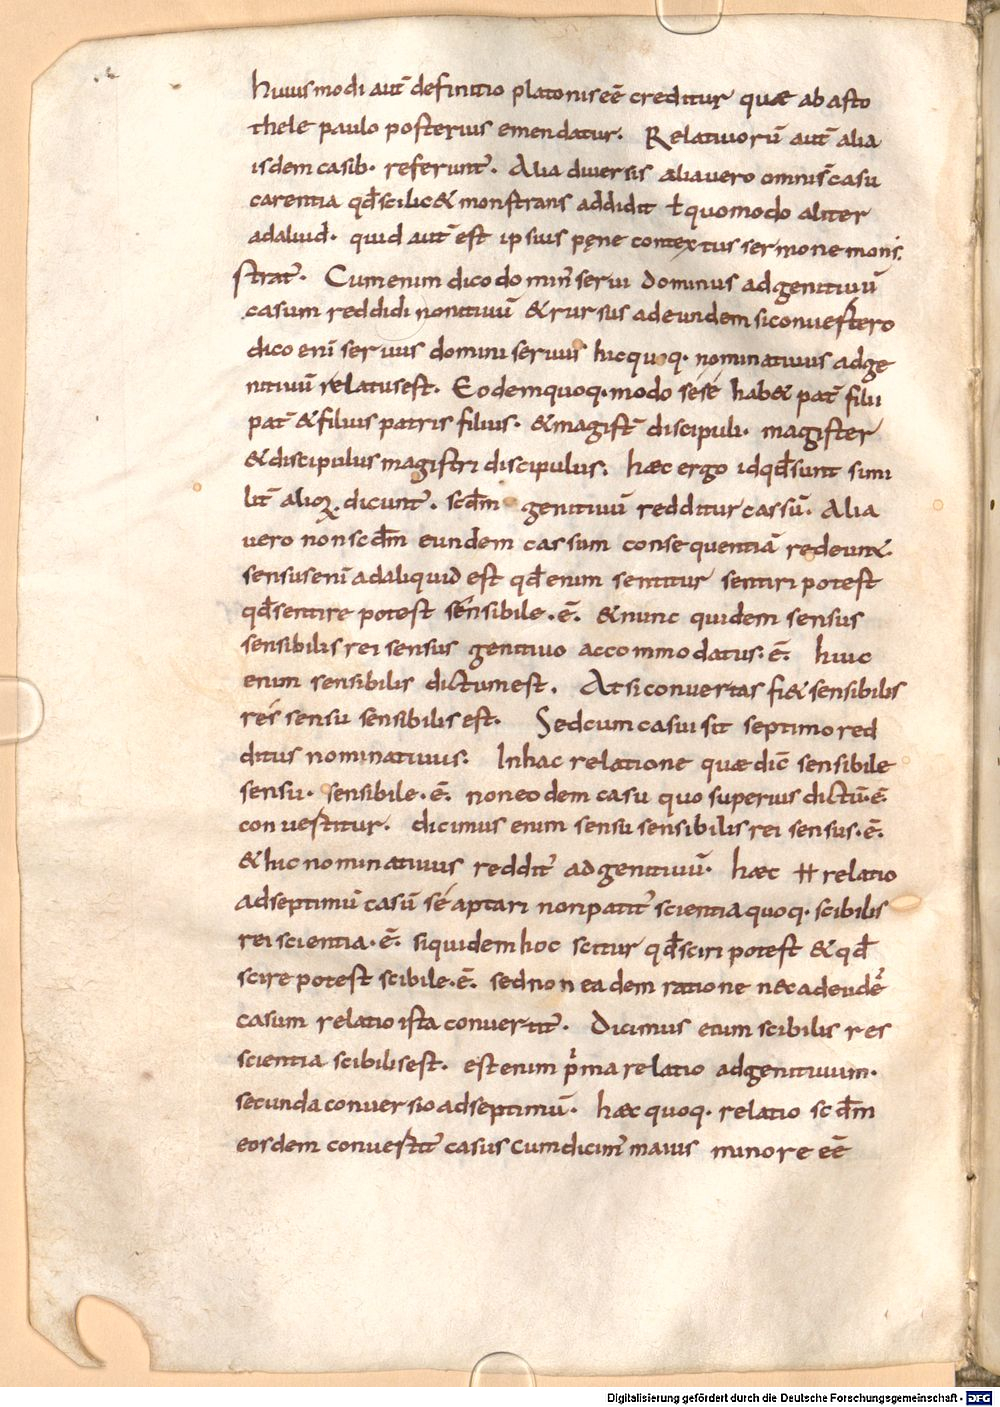 huiusmodi aut̄ definitio platonis eē creditur quae ab aristo
thele paulo posterius emendatur. Relatiuorū aut̄ alia
isdem casib· referunt̄. Alia diuersis alia uero omni casu
carentia qd̄ scilic& monstrans addidit ł quomodo aliter
ad aliud· quid aut̄ est ipsius pęne contextus sermone mons
strat̄· Cum enim dico domin̄ serui dominus ad genitiuū
casum reddidi nominatiuū & rursus ad eundem si conuertero
dico enī seruus domini seruus hic quoq· nominatiuus ad ge
nitiuū relatus est. Eodem quoq· modo sese hab& pat̄ filii
pat̄ & filius patris filius· & magist̄ discipuli· magister
& discipulus magistri discipulus. haec ergo id qd̄ sunt simi
lit̄ alioꝝ dicunt̄. scd̄m genitiuū redditur cassū· Alia
uero non scd̄m eundem cassum consequentiā redeunt·
sensus enī ad aliquid est qd̄ enim sentitur sentiri potest
qd̄ sentire potest sensibile·ē· & nunc quidem sensus
sensibilis rei sensus genitiuo accommodatus·ē· huic
enim sensibilis dictum est. At si conuertas fi& sensibilis
res sensu sensibilis est. Sed cum casui sit septimo red
ditus nominatiuus. In hac relatione quae dic̄ sensibile
sensu· sensibile·ē· non eodem casu quo superius dictū·ē·
conuertitur. dicimus enim sensu sensibilis rei sensus·ē·
& hic nominatiuus reddit̄ ad genitiuū· haec ⧺ relatio
ad septimū casū se aptari non patit̄ scientia quoq· scibilis
rei scientia·ē· siquidem hoc scitur qd̄ sciri potest & qd̄
scire potest scibile·ē· sed non eadem ratione nec ad eudē
casum relatio ista conuertit̄. Dicimus enim scibilis res
scientia scibilis est. est enim p̄ma relatio ad genitiuum·
secunda conuersio ad septimū· haec quoq· relatio scd̄m
eosdem conuertit̄ casus cum dicim̄ maius minore eē
Digitalisierung gefördert durch die Deutsche Forschungsgemeinschaft - DFG